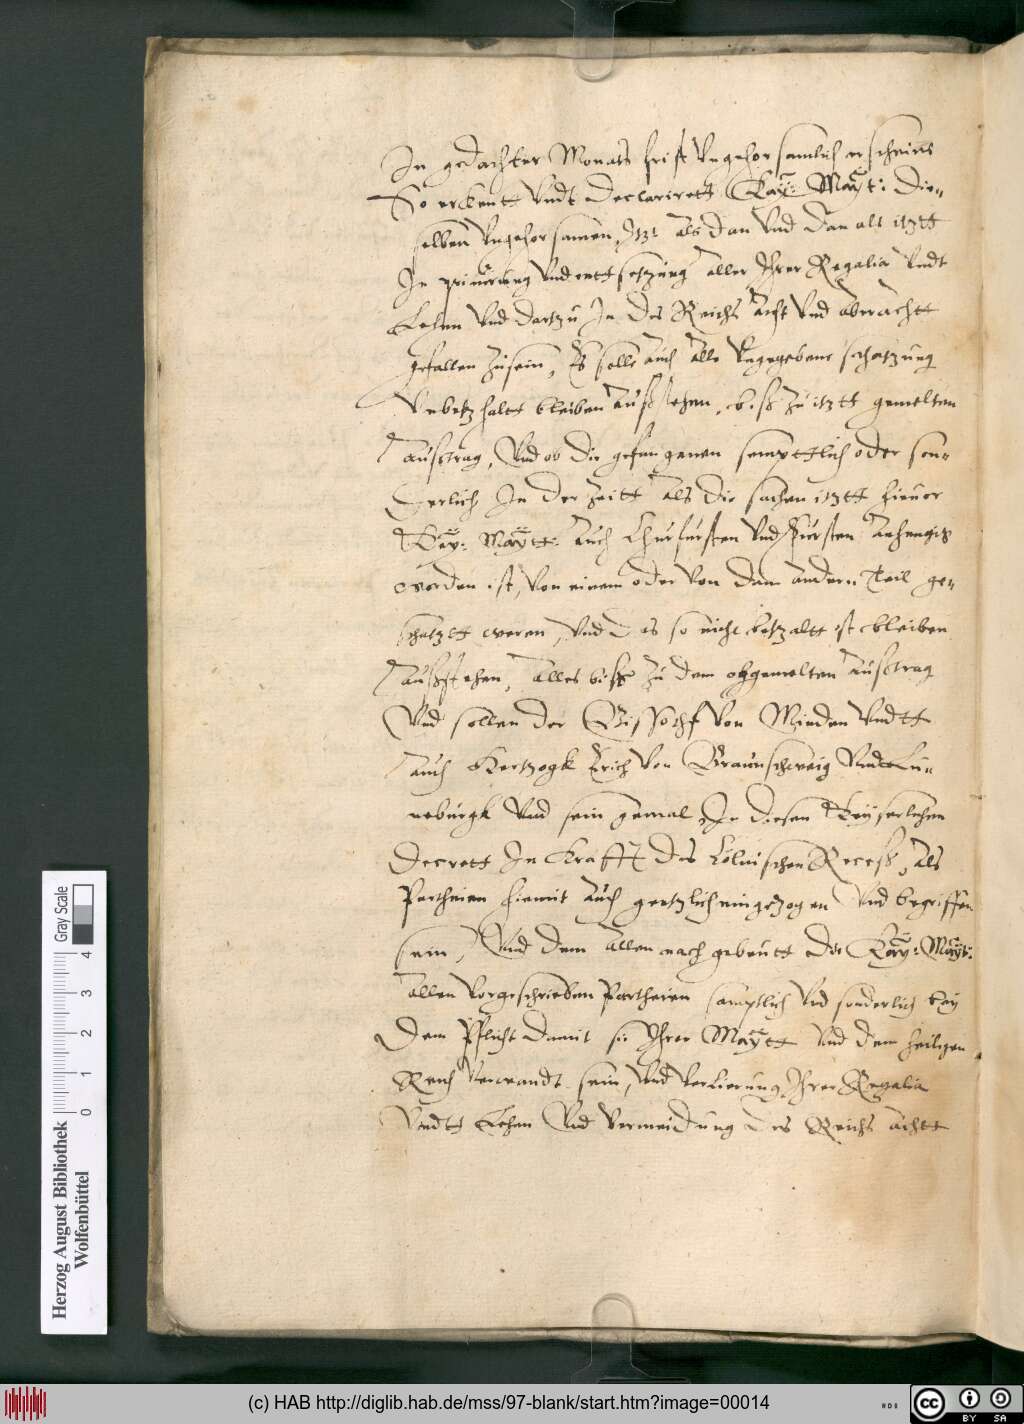 In gedachter Monats frist Ungehorsamlich erscheint
So erkentt Undt declarirett Kay: Mayt: die-
selben Ungehorsamen, Itzt als dan Und dan alß itztt
In privirung Und enttsetzung aller Ihrer Regalia Undt
Lehen Und dartzu In des Reichs Acht Und aberachtt
gefallen zusein, Es solle auch alle Ungegebene schatzung
Unbetzhaltt bleiben außstehen, biß zu itztt gemelten
außtrag, Und ob die gefangenen semptlich oder son-
derlich In der Zeitt als die sachen itztt hievor
Kay: Maytt: auch Churfursten Und Fursten anhengig
worden ist, Von einem oder Von dem andern Teil ge-
schatztt weren, Und das so nicht betzaltt ist bleiben
außstehen, alles biß zu dem obgemelten außtrag
Und sollen der Bisschof Von Minden Undtt
auch Hertzogk Erich Von Braunschweig Und Lu-
neburgk Und sein gemal In diesen Keyserlichen
Decrett In Krafft des Cölnischen Receß, als
Partheien hiemit auch gentzlich eingezogen Und begriffen
sein, Und dem allen nach gebeutt die Kay: Mayt:
allen Vorgeschrieben Partheien samptlich Und sonderlich bey
dem Pflicht damit sie Ihrer Maytt Und dem heiligen
Reich Verwandt sein, Und Verlierung Ihrer Regalia
Undtt Lehen Und Vermeidung des Reichs achtt
Herzog August Bibliothek
Wolfenbüttel
0 1 2 3 4
Gray Scale
(c) HAB http://diglib.hab.de/mss/97-blank/start.htm?image=00014
cc BY SA